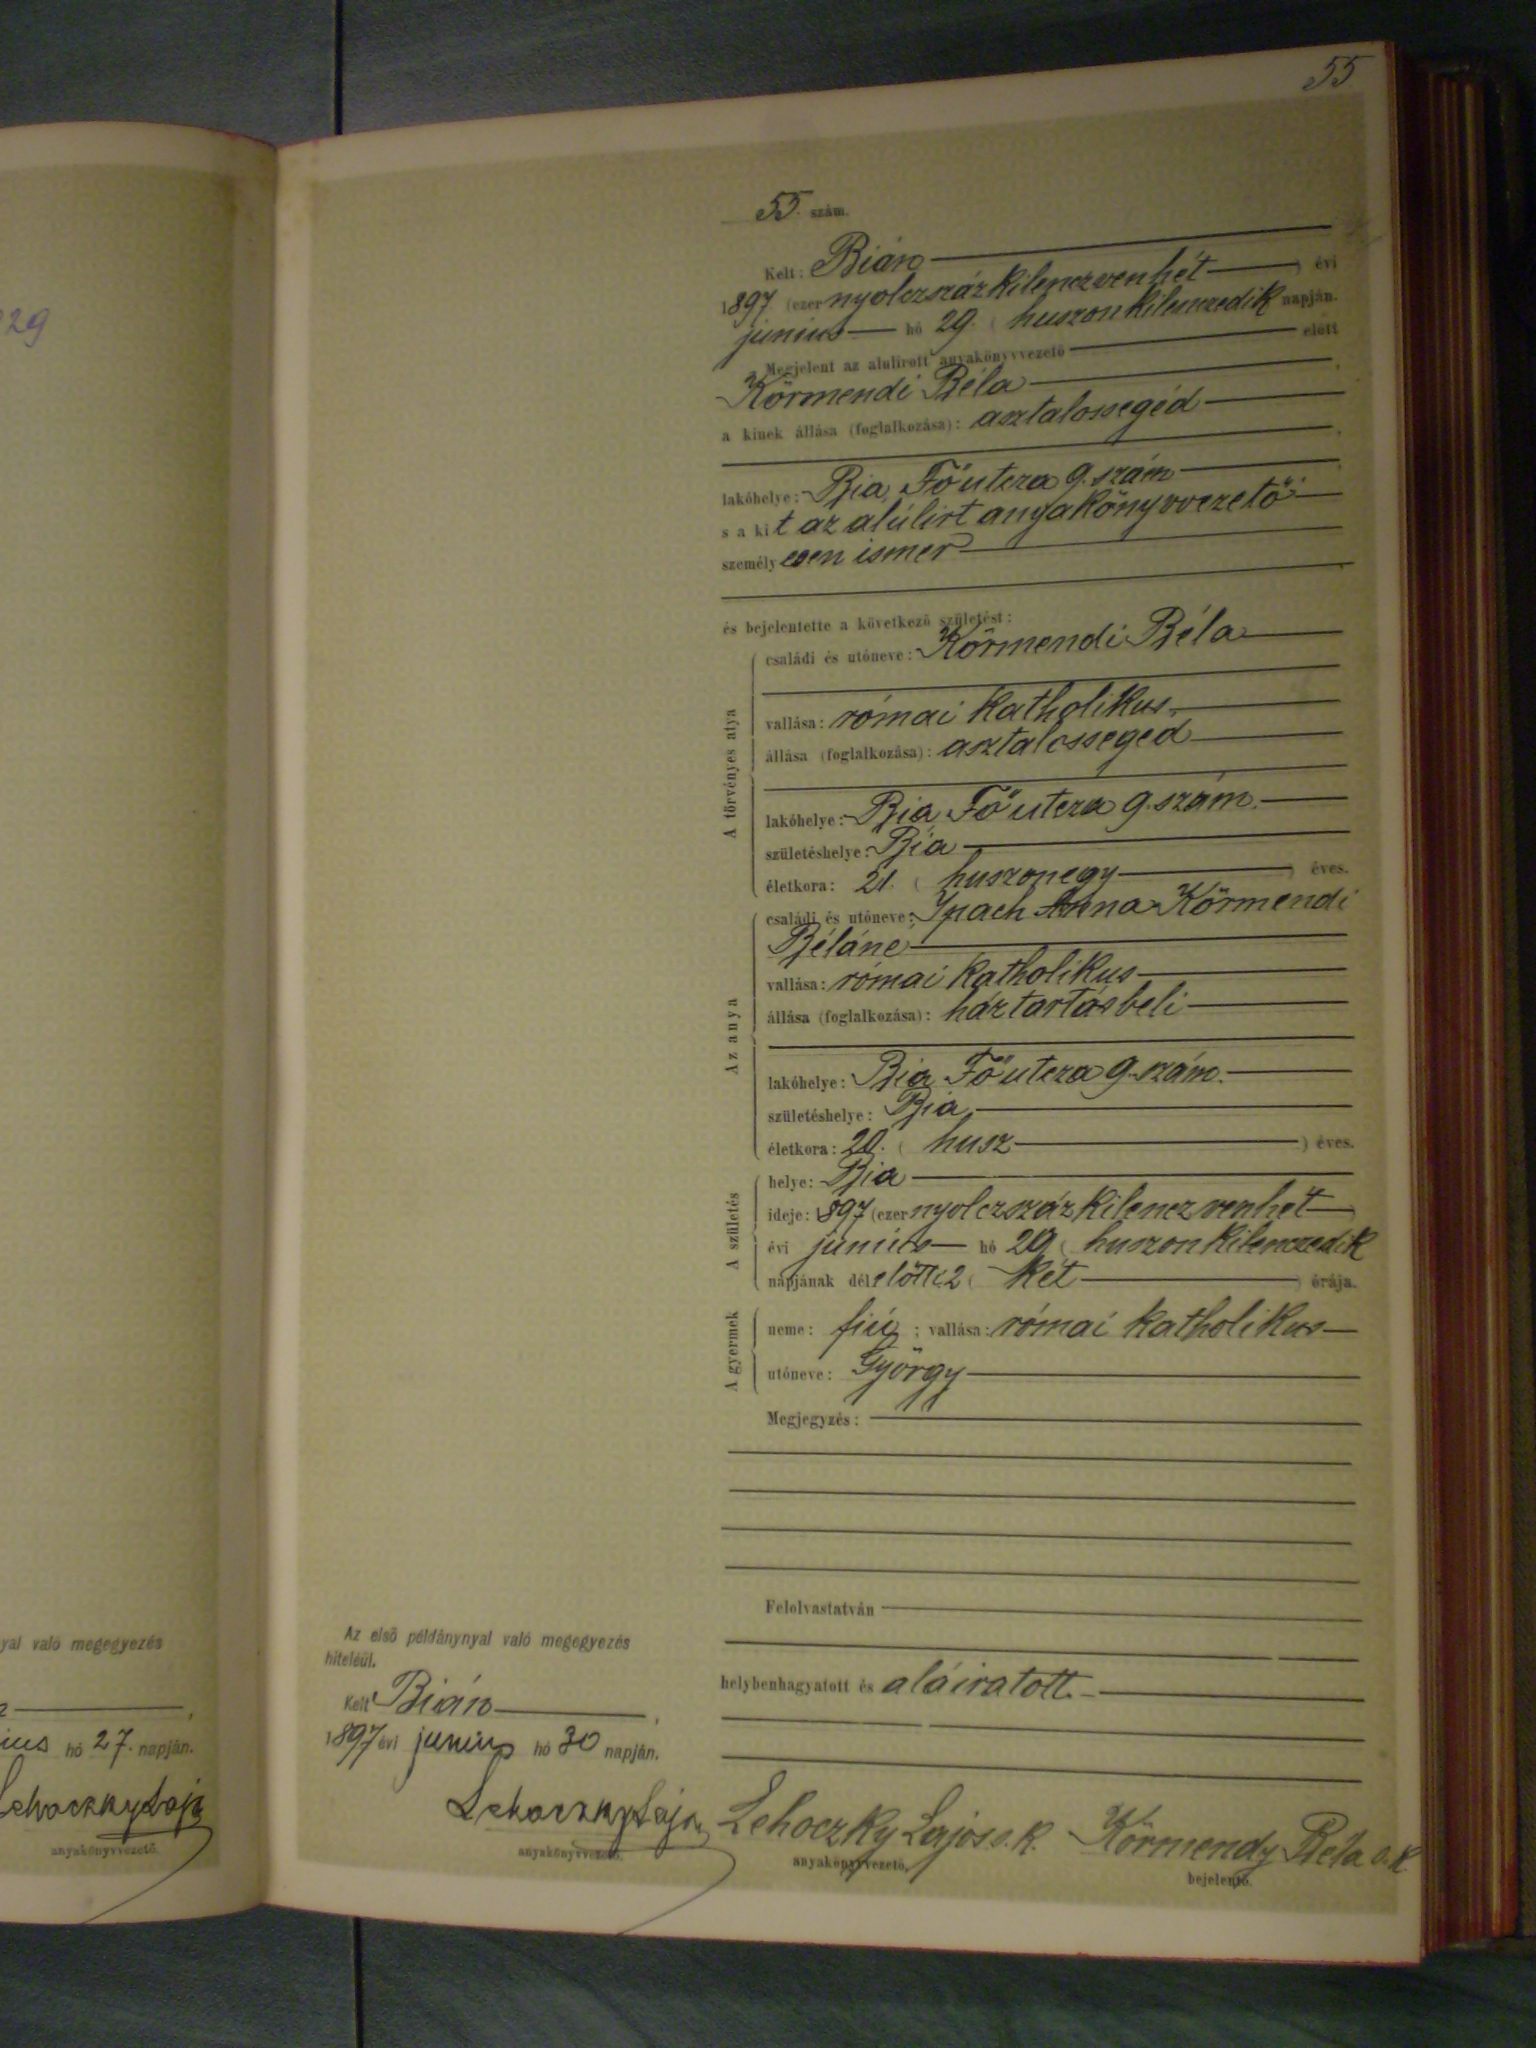 55
55. szám.
Kelt: Bián
1897 (ezer nyolczszázkilenczvenhét) évi
junius hó 29. (huszonkilenczedik napján.
Megjelent az alulirott anyakönyvvezető előtt
Körmendi Béla
a kinek állása (foglalkozása): asztalossegéd
lakóhelye: Bia, Fő utcza 9. szám
s a kit az alúlirt anyakönyvvezető
személyesen ismer
és bejelentette a következő születést:
A törvényes atya
családi és utóneve: Körmendi Béla
vallása: római katholikus
állása (foglalkozása): asztalossegéd
lakóhelye: Bia, Fő utcza 9. szám.
születéshelye: Bia
életkora: 21. (huszonegy) éves.
Az anya
családi és utóneve: Ipach Anna Körmendi
Béláné
vallása: római katholikus
állása (foglalkozása): háztartásbeli
lakóhelye: Bia, Fő utcza 9. szám.
születéshelye: Bia,
életkora: 20. (husz) éves.
A születés
helye: Bia
ideje: 1897 (ezer nyolczszázkilenczvenhét)
évi junius hó 29 (huszonkilenczedik
napjának délelőtti 2 (két) órája.
A gyermek
neme: fiú; vallása: római katholikus
utóneve: György
Megjegyzés:
Felolvastatván
helybenhagyatott és aláiratott.
Lehoczky Lajos s. k. Körmendy Béla s. k
anyakönyvvezető, bejelentő.
Az első példánynyal való megegyezés
hiteléül.
Kelt Bián,
1897 évi junius hó 30 napján.
Lehoczky Lajos
anyakönyvvezető.
29
yal való megegyezés
ius hó 27. napján.
Lehoczky Lajos
anyakönyvvezető.